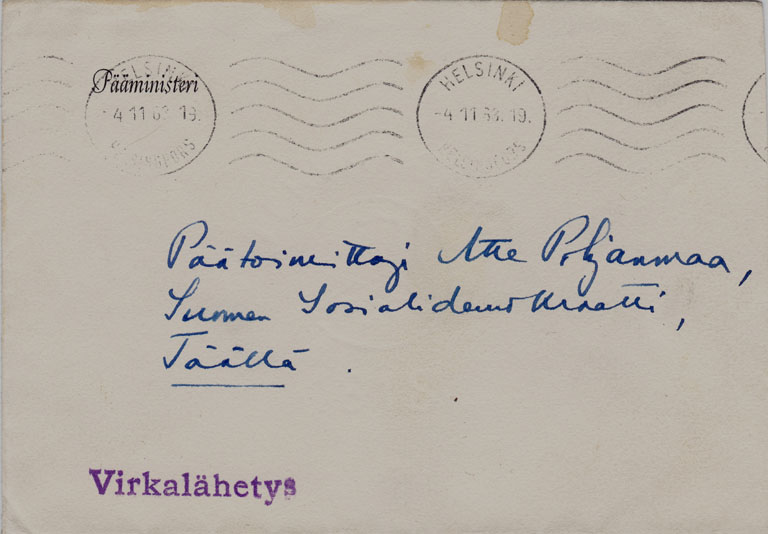 Pääministeri
HELSINKI
-4.11.63 19.
HELSINGFORS
HELSINKI
-4.11.63.19.
HELSINGFORS
Päätoimittaja Atte Pohjanmaa,
Suomen Sosialidemokraatti,
Täällä.
Virkalähetys